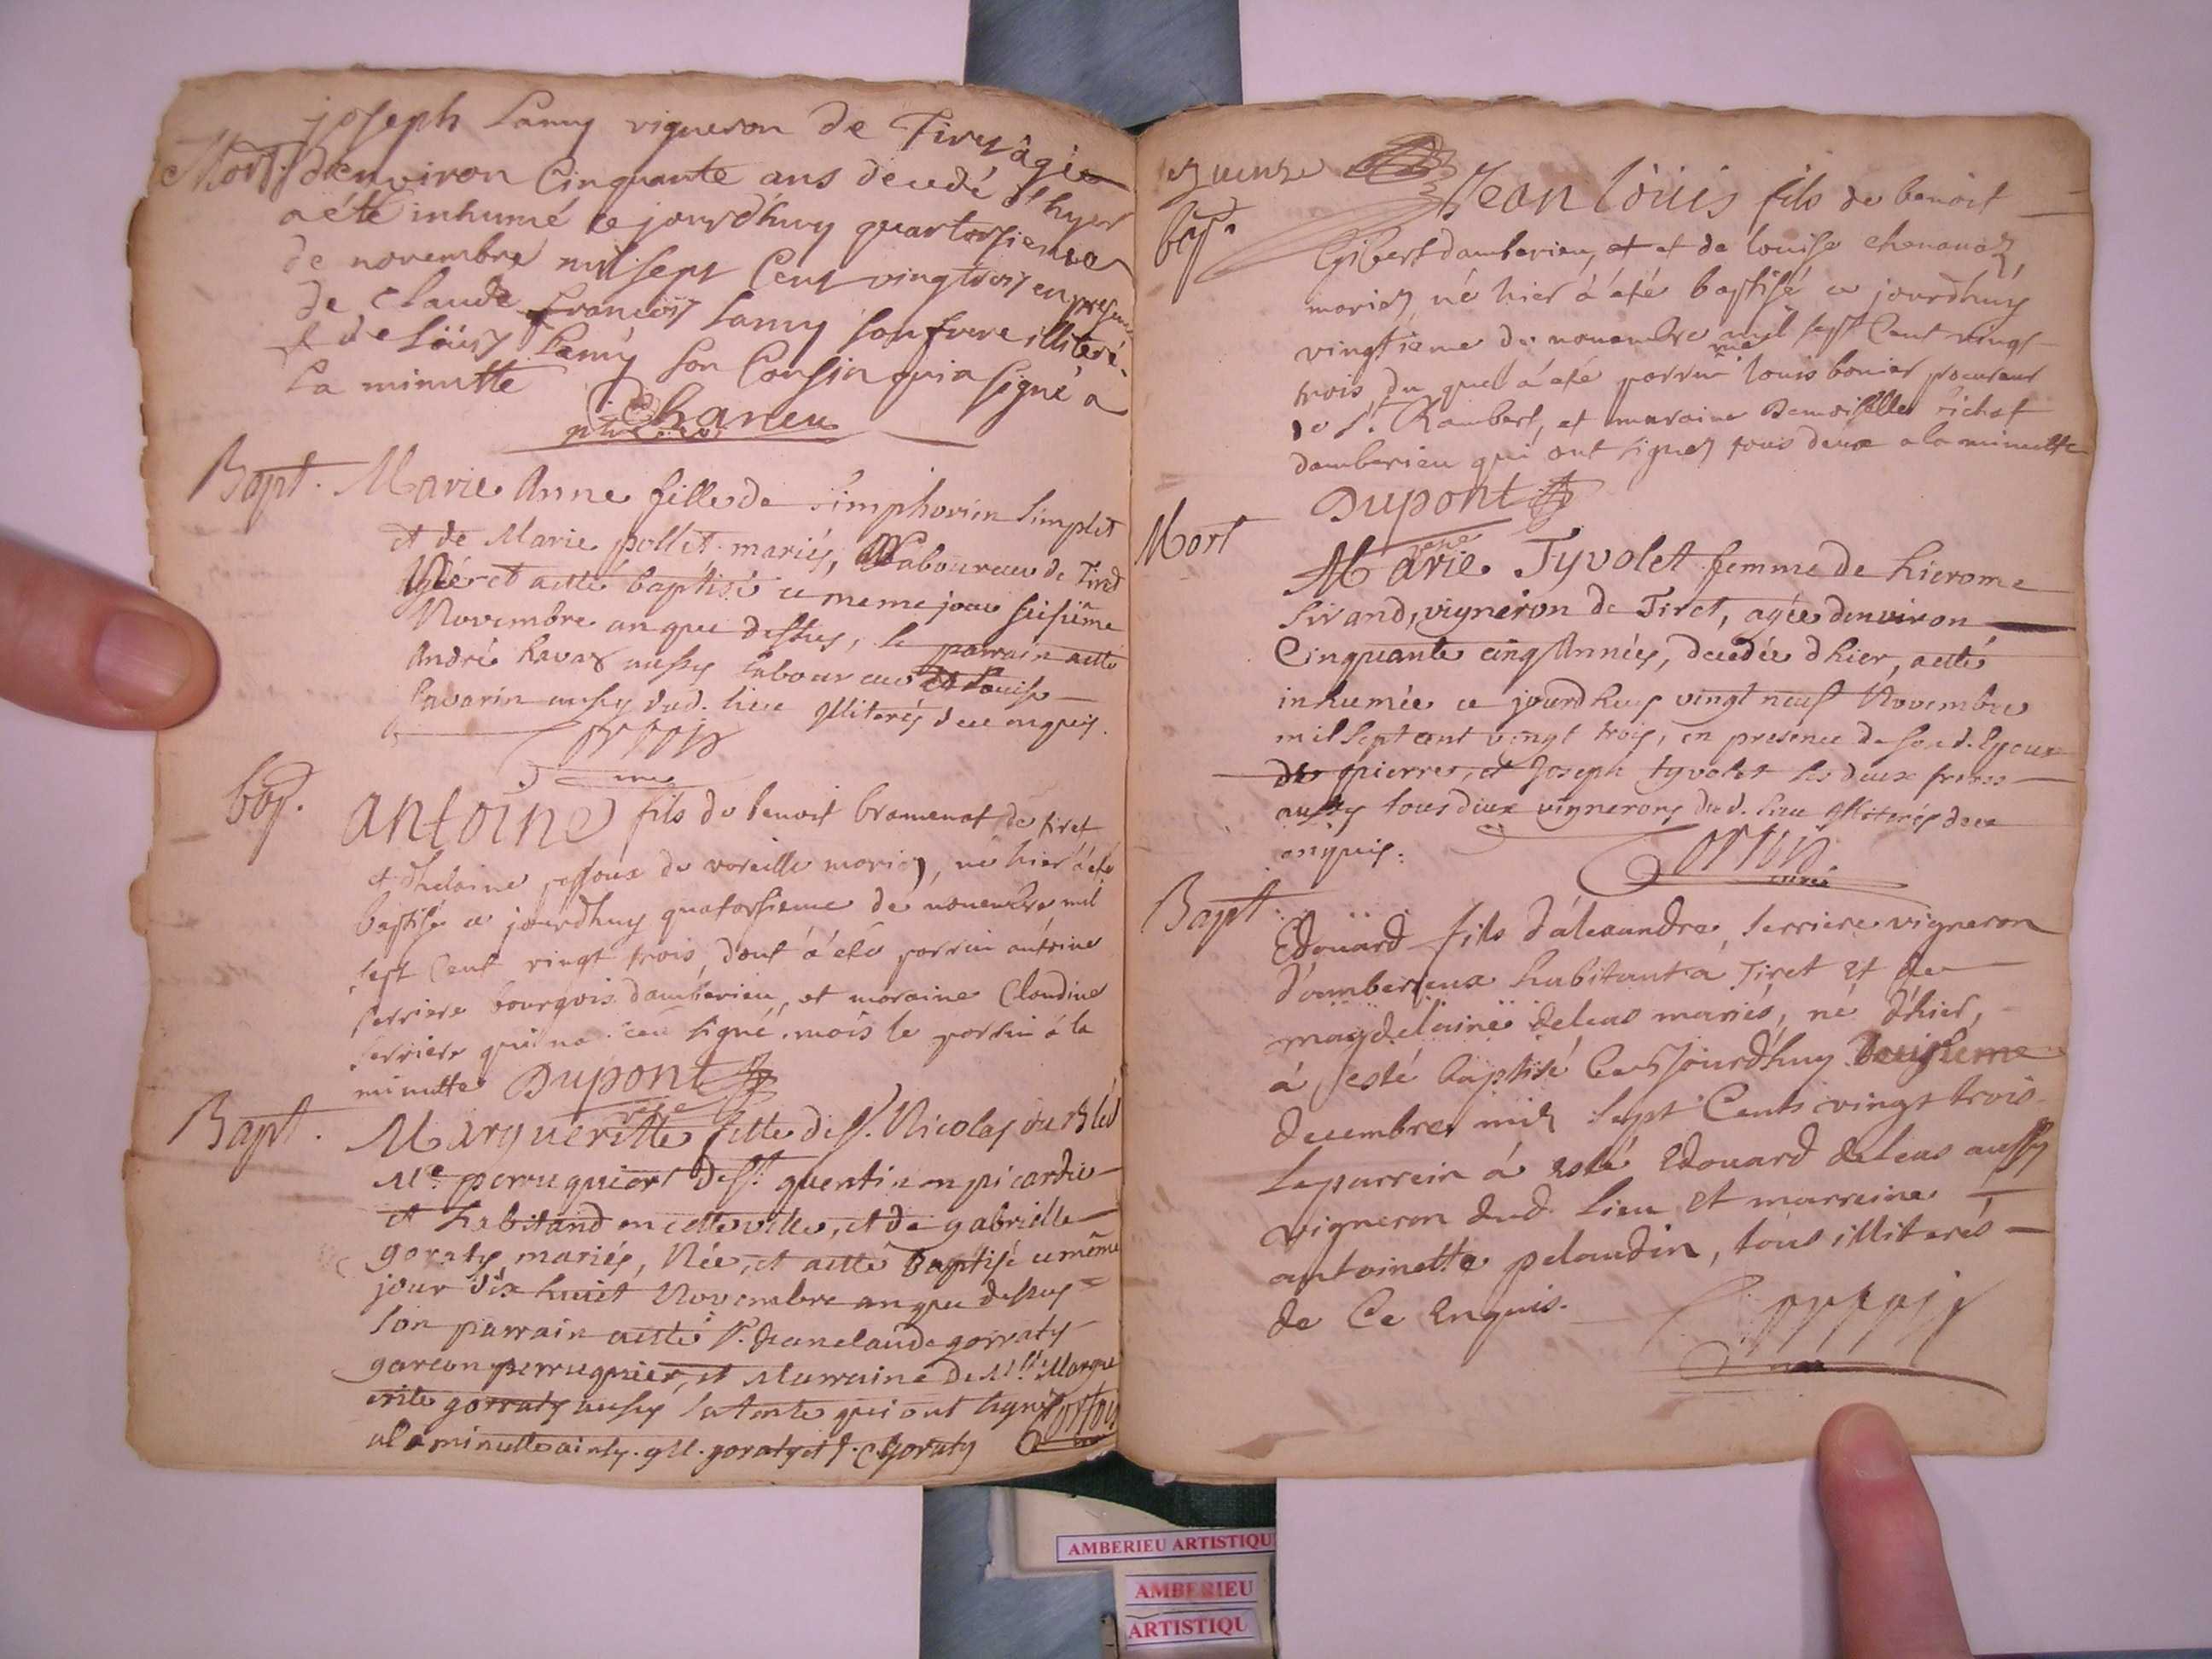 joseph Lamy vigneron de Tirey âgée
Mort. d'environ Cinquante ans decedé d'hyer
a été inhumé ce jourdhuy quartorsiemme
de novembre mil sept Cent vingtrois en presence
de Claude françois Lamy son frere illiteré
& de Loüis Lamy son Cousin qui a signé a
la minutte
Charcu
Bapt. Marie Anne fille de simphorien simplet
et de Marie pollet mariés, Laboureur de Tiret
Née et aetté baptisé ce meme jour seisiême
Novembre an que dessus, le parrain aetté
André Ravaz aussy Laboureur et Louise
Savarin aussy dud. lieu illiterés de ce enquis.
bap. antoine fils de benoit bramenat de tiret
et dhelaine
de vareille mariez, né hier a été
baptisé ce jourdhuy quatorsieme de novembre mil
sept Cent vingt trois, dont a été parrin antoine
serriere bourgois damberieu, et maraine Claudine
serriere qui na signé mais le parrin a la
minutte Dupont
vre
Bapt. Margueritte fille de Sr. Nicolas
Me. perruquier de St. quentin en picardie
et habitand en cette ville, et de gabrielle
goraty mariés, Née, et aetté Baptisé ce même
jour dix huit Novembre an que dessus
son parrain aetté Sr. Jean claude gorraty
garcon perruquier, et Marraine de Mlle. Margue
rite gorraty aussy sa tante qui ont signé
a la minutte ainsy. gll. goraty et J. C. goraty
bap. Jean loüis fils de benoit
Gibert damberieu, et et de louise chenavaz,
mariez, né hier a été baptisé ce jourdhuy
vingtieme de novembre mil sept Cent vingt
trois, du quel a été parrin louis bonier procureur
de St. Rambert, et maraine Demoiselle sichat
damberieu qui ont signez tous deux a la minutte
Dupont
vre
Mort
Marie Tyvolet femme de hierome
Sivand, vigneron de Tiret, agée d'environ
Cinquante cinq Années, decedée d hier, aetté
inhumée ce jourdhuy vingt neuf Novembre
mil sept cent vingt trois, en presence de son d. Epoux
de pierre, et Joseph tyvolet ses deux freres
aussy tous deux vignerons dud. lieu illiterés de ce
enquis.
curé
Bapt Edouard fils d'alexandre serriere vigneron
d'amberieux habitant a Tiret et de
magdelaine deleas mariés, né d'hier,
a esté baptisé Ce Jourd'huy deusieme
decembre mil sept Cents vingt trois
le parrein a esté Edouard deleas aussy
vigneron dud. lieu et marreine
antoinette pelaudin, tous illiterés
de Ce Enquis.
AMBERIEU ARTISTIQU
AMBERIEU
ARTISTIQU